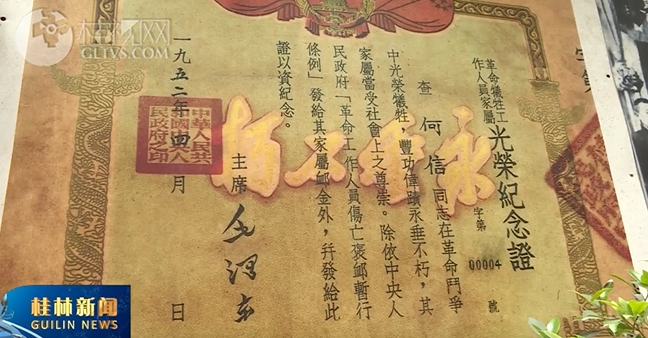 革命犧牲工
作人員家屬
光榮紀念證
字第 00004 號
查何信同志在革命鬥爭
中光榮犧牲，豐功偉蹟永垂不朽，其
家屬當受社會上之尊崇。除依中央人
民政府「革命工作人員傷亡褒卹暫行
條例」發給其家屬卹金外，幷發給此
證以資紀念。
主席 毛澤東
一九五二年四月 日
中華人民共
和國中央人
民政府之印
永垂不朽
桂视网
GLTVS.COM
桂林新闻
GUILIN NEWS